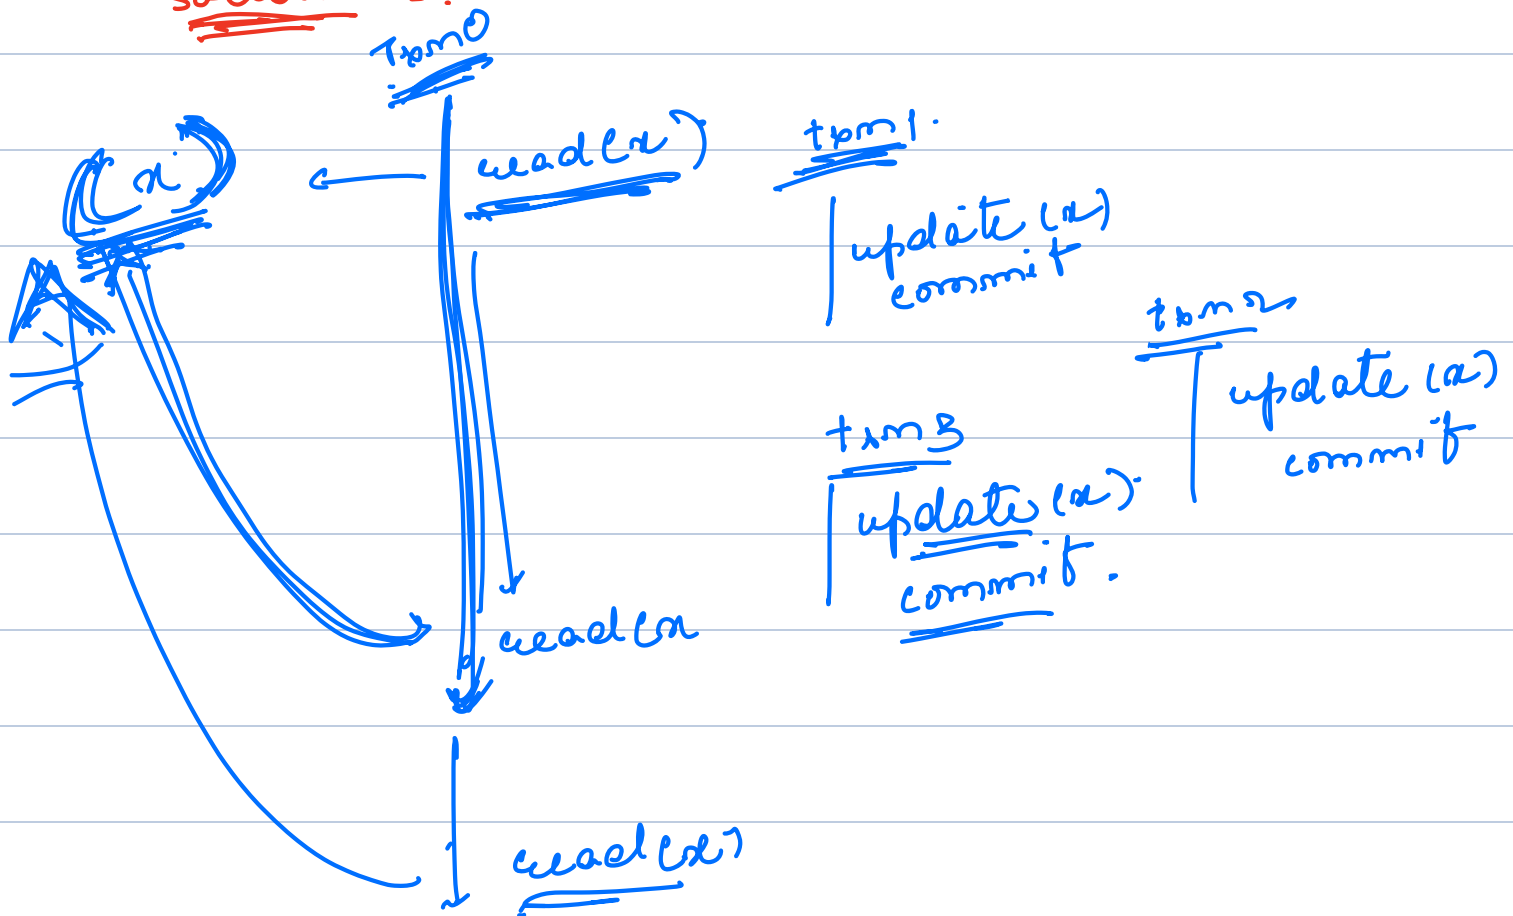 txn0
read(x)
(x)
txn1.
update(x)
commit
txn2
update(x)
commit
txn3
update(x)
commit.
read(x
read(x)